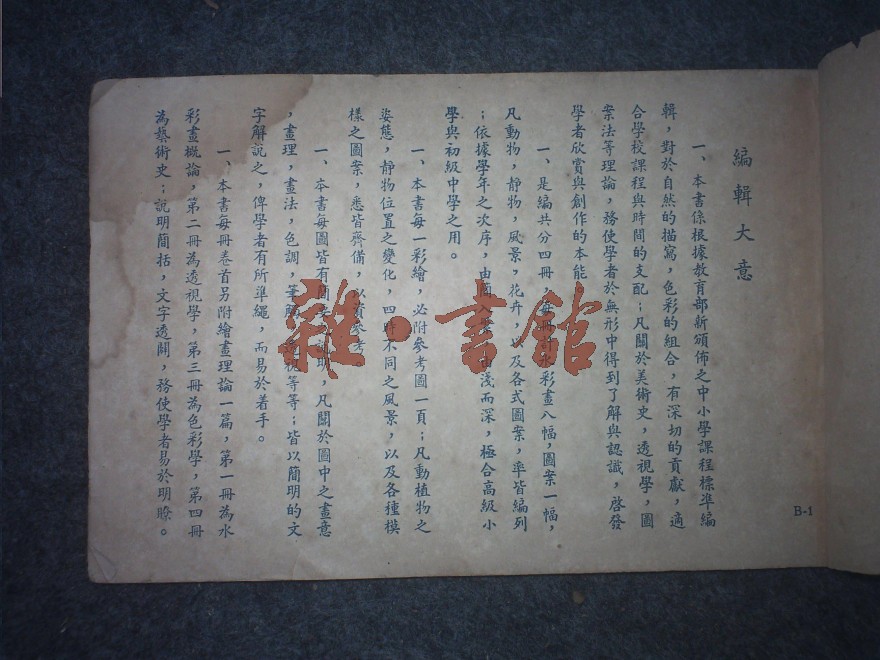 編輯大意
一、本書係根據教育部新頒佈之中小學課程標準編
輯，對於自然的描寫，色彩的組合，有深切的貢獻，適
合學校課程與時間的支配；凡關於美術史，透視學，圖
案法等理論，務使學者於無形中得到了解與認識，啓發
學者欣賞與創作的本能
一、是編共分四冊，每冊計水彩畫八幅，圖案一幅，
凡動物，靜物，風景，花卉，以及各式圖案，率皆編列
；依據學年之次序，由淺而深，極合高級小
學與初級中學之用。
一、本書每一彩繪，必附參考圖一頁；凡動植物之
姿態，靜物位置之變化，四時不同之風景，以及各種模
樣之圖案，悉皆齊備，以資參考
一、本書每圖皆有說明，凡關於圖中之畫意
，畫理，畫法，色調，筆觸，透視等等；皆以簡明的文
字解說之，俾學者有所準繩，而易於着手。
一、本書每冊卷首另附繪畫理論一篇，第一冊為水
彩畫概論，第二冊為透視學，第三冊為色彩學，第四冊
為藝術史；說明簡括，文字透闢，務使學者易於明瞭。
B-1
雜·書館